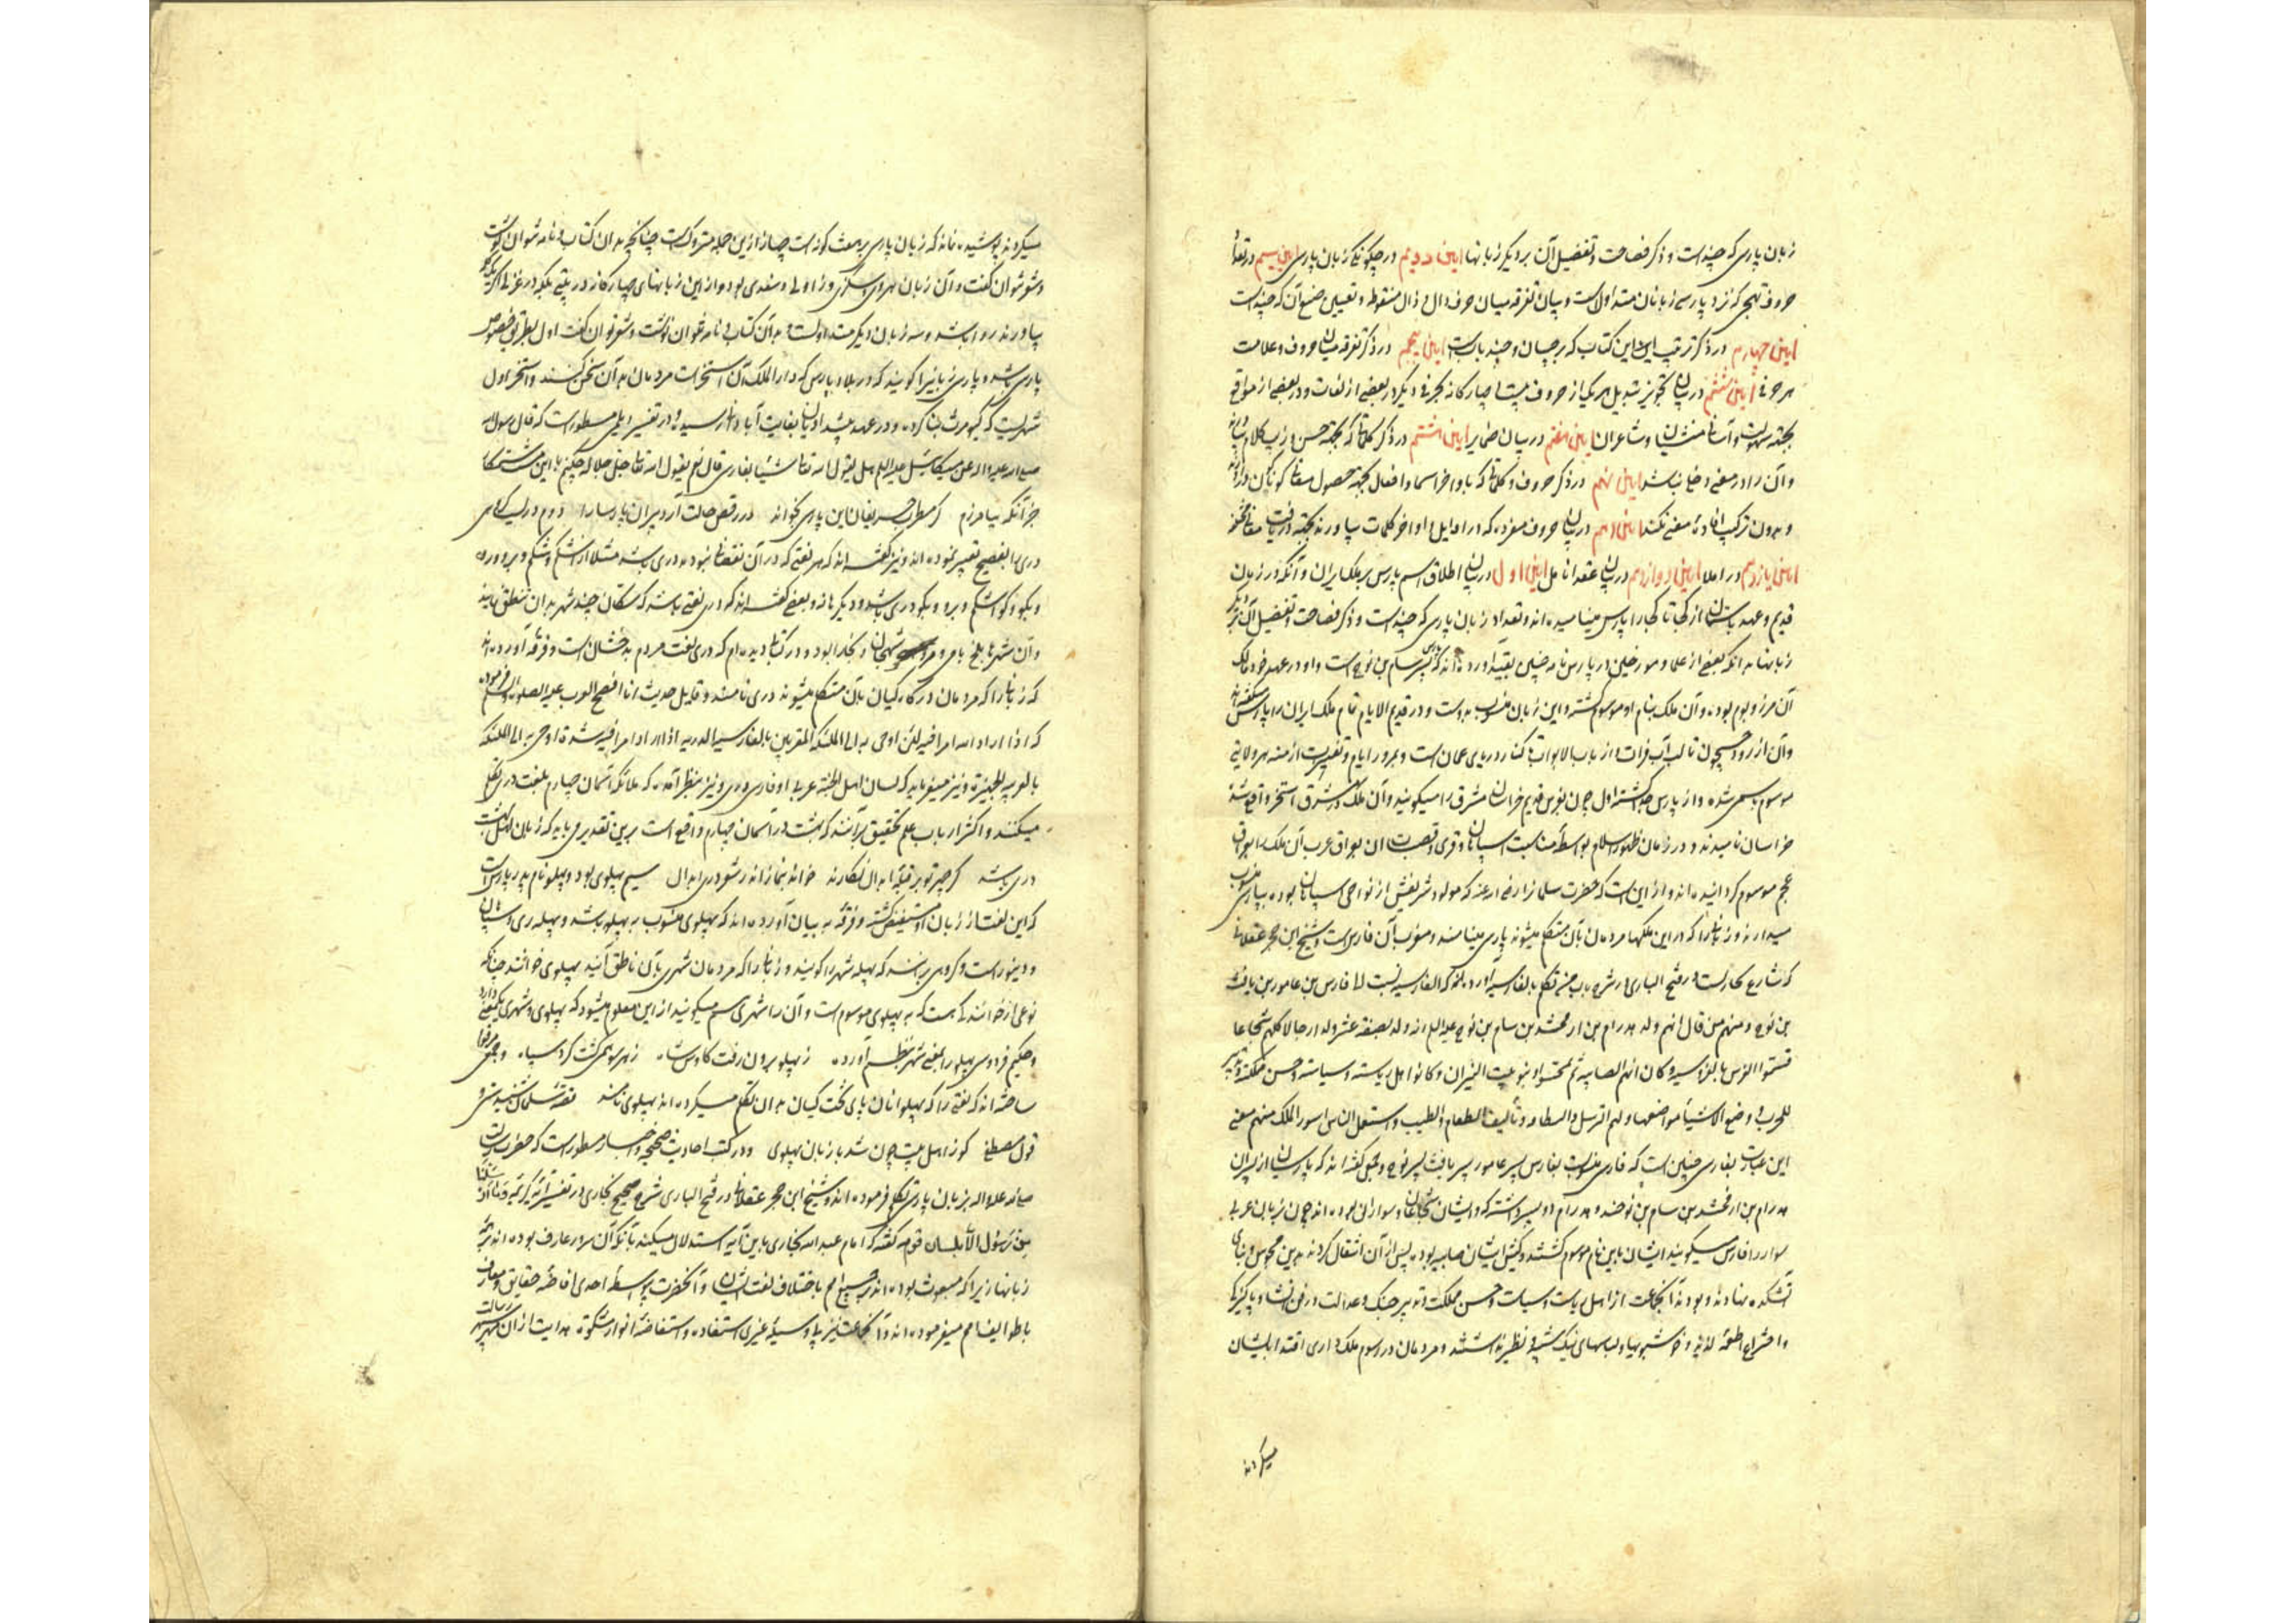 زبان پارسی که چند است و ذکر فصاحت و تفضیل آن بر دیگر زبانها آیین دویم در چگونگی زبان پارسی آیین سیم در تعداد
حروف تهجی که نزد پارسی زبانان متداول است و بیان تفرقه میان حرف دال و ذال منقوطه و تعیین صیغ آن که چند است
آیین چهارم در ذکر ترتیب این کتاب که بر چسان و چند باب است آیین پنجم در ذکر تفرقه میان حروف و علامت
هر حرفی آیین ششم در بیان تجویز تبدیل هر یک از حروف بیست و چهارگانه بحرفی دیگر در بعضی از لغات و در بعضی از مواقع
بجهته سهولت و آسانی منشیان و شاعران آیین هفتم در بیان ضمایر آیین هشتم در ذکر کلماتی که بجهته حسن و زیب کلام
و آن را در معنی دخلی نباشد آیین نهم در ذکر حروف و کلماتی که باواخر اسما و افعال بجهته حصول معانی گوناگون در آرند
و بدون ترکیب افادهٔ معنی نکند آیین دهم در بیان حروف مفرده که در اوایل و اواخر کلمات بیاورند بجهته دریافت معانی مختلفه
آیین یازدهم در املا آیین دوازدهم در بیان عقد انامل آیین اول در بیان اطلاق اسم پارس بر ملک ایران و آنکه در زمان
قدیم و عهد باستان از کجا تا کجا را پارس مینامیده اند و تعداد زبان پارسی که چند است و ذکر فصاحت و تفضیل آن بر دیگر
زبانها بدانکه بعضی از علما و مورخین در پارس نامه چنین بقید آورده اند که پارس پسر سام بن نوح است و او در عهد خود مالک
آن مرز و بوم بوده و آن ملک بنام او موسوم گشته و این زبان منسوب بدوست و در قدیم الایام تمام ملک ایران را پارس میگفته اند
و آن از رود جیحون تا لب آب فرات و از باب الابواب تا کنار دریای عمان است و بمرور ایام و تغییر ازمنه هر ولایتی
موسوم باسمی شده و از پارس جدا گشته اول چون بلغوس قدیم خراسان مشرق را میگویند و آن ملک در مشرق استخر واقع شده
خراسان نامیدند و در زمان ظهور اسلام بواسطهٔ مناسبت اسپاهان و قری و قصبات آن بعراق عرب آن ملک را بعراق
عجم موسوم گردانیده اند و از این است که حضرت سلمان را رضی الله عنه که مولود شریفش از نواحی سپاهان بوده بپارسی منسوب
میدارند و زبانی را که در این ملکها مردمان بآن متکلم میشوند پارسی مینامند و معرب آن فارسی است و شیخ ابن حجر عسقلانی
که شارح بخاریست در فتح الباری در شرح باب من تکلم بالفارسیة آورده که الفارسیة نسبت الی فارس بن عامور بن یافث
بن نوح و منهم من قال انهم ولد هدرام بن ارفخشد بن سام بن نوح علیه السلام انه ولد بضعة عشر ولدا رجالا کلهم شجاعا
فسموا الفرس بالفروسیة و کان انهم الصابیة ثم تمجسوا و بنو بیت النیران و کانوا اهل ریاسته و سیاسته و حسن مملکته و تدبیر
للحرب و وضع الاشیاء مواضعها و لهم الترسل و السطامه و تألیف الطعام و الطیب و استعمل الناس امور الملک منهم معنی
این عبارت بفارسی چنین است که فارسی منسوب بفارس پسر عامور پسر یافث پسر نوح و بعضی گفته اند که پارسیان از پسران
هدرام بن ارفخشد بن سام بن نوحند و هدرام ده پسر داشته که ایشان شجاعان و سواران بوده اند چون بزبان عربی
سوار را فارس میگویند ایشان باین نام موسوم گشتند و کیش ایشان صابیه بود پس از آن انتقال کردند بدین مجوس و بنای
آتشکده نهادند و بودند آنجماعت از اهل ریاست و سیاست و حسن مملکت و تدبیر جنگ و عدالت در فن انشا و پاکیزگی
و اختراع اطعمهٔ لذیذ و خوشبویها و لباسهای نیک بیشبه و نظیر داشتند و مردمان در رسوم ملک داری اقتدا بایشان
میکردند
میکردند پوشیده نماند که زبان پارسی بر هفت گونه است چهار از این جمله متروک است چنانچه بدان کتاب و نامه نتوان نوشت
و شعر نتوان گفت و آن زبان هروی و سکزی و زاولی و سغدی بود و از این زبانهای چهارگانه در بیتی بلکه در غزلی اگر یک کلمه
بیاورند روا باشد و سه زبان دیگر متداولست و بآن کتاب و نامه توان نوشت و شعر توان گفت اول بطریق خصوص
پارسی باشد و پارسی زبانی را گویند که در بلاد پارس که دار الملک آن استخر است مردمان بدآن سخن کنند و استخر اول
شهریست که کیومرث بنا کرده و در عهد پیشدادیان بغایت آبادانی رسیده و در تفسیر دیلمی مسطور است که قال رسول الله
صلی الله علیه و آله عن میکائیل علیه السلام هل یقول الله تعالی شیئا بفارسی قال نعم یقول الله تعالی جل جلاله چکنم با این مشت ستمکار
جز آنکه بیامرزم گر مطرب حریفان این پارسی بخواند در رقص حالت آرد پیران پارسا را دوم دری کسی
دری را بفصیح تعبیر نموده اند و نیز گفته اند که هر لغتی که در آن نقصانی نبود دری باشد مثلا اشکم و شکم و برو و رو
و بگو و گو اشکم و برو و بگو دری باشد و دیگرها نه و بعضی گفته اند که دری لغتی باشد که ساکنان چند شهر بدان متنطق باشند
و آن شهرها بلخ بامی و مرو شهجان و بخارا بود و در کتابی دیده ام که دری لغت مردم بدخشان است و فرقه آورده اند
که زبانی را که مردمان درگاه کیان بآن متکلم میشوند دری نامند و قایل حدیث انا افصح العرب علیه الصلوة و السلم فرموده
که اذا اراد الله امرا فیه لین اوحی به الی الملائکة المقربین بالفارسیة الدریه اذا اراد امرا فیه شدة اوحی به الی الملائکة
بالعربیه الجبیزیة و نیز میفرماید که لسان اهل الجنة عربی او فارسی دری و نیز بنظر آمده که ملائکه آسمان چهارم بلغت دری تکلم
میکنند و اکثر ارباب علم تحقیق برآنند که بهشت در آسمان چهارم واقع است بر این تقدیر می باید که زبان اهل بهشت
دری باشد گر چهر تو بر قبلهٔ ابدال نگارند خوانند نماز اندر شعر دری ابدال سیم پهلوی بود و پهلو نام پدر پارس است
که این لغت از زبان او مستفیض گشته و فرقه به بیان آورده اند که پهلوی منسوب به پهله باشد و پهله ری و اسپاهان
و دینور است و گروهی برانند که پهله شهر را گویند و زبانی را که مردمان شهری بآن ناطق آیند پهلوی خوانند چنانکه
نوعی از خوانندگی هست که به پهلوی موسوم است و آن را شهری اسم میگویند از این معلوم میشود که پهلوی و شهری یک معنی دارد
و حکیم فردوسی پهلو را بمعنی شهر بنظم آورده ز پهلو برون رفت کاوس شاه ز هر سو همی گشت گرد سپاه و جمعی مرقوم
ساخته اند که لغتی را که پهلوانان پای تخت کیان بدان تکلم میکرده اند پهلوی باشد قصهٔ سلمان شنیدستی و
قول مصطفی کو ز اهل بیت چون شد با زبان پهلوی و در کتب احادیث صحیحه و اخبار مسطور است که حضرت رسالت
صلی الله علیه و آله بزبان پارسی تکلم فرموده اند و شیخ ابن حجر عسقلانی در فتح الباری شرح صحیح بخاری در تفسیر آیه کریمه و ما ارسلنا
من رسول الا بلسان قومه گفته که امام عبدالله بخاری باین آیه استدلال میکند بآنکه آن سرور عارف بوده اند بهمه
زبانها زیرا که مبعوث بوده اند بجمیع امم باختلاف لغت ایشان و آنحضرت بواسطهٔ احدی افاضهٔ حقایق و معارف
با طوایف امم میفرموده اند و آنجماعت نیز بی وسیله غیری استفاده و استفاضهٔ انوار مشکوة هدایت از آن سپهر رسالت